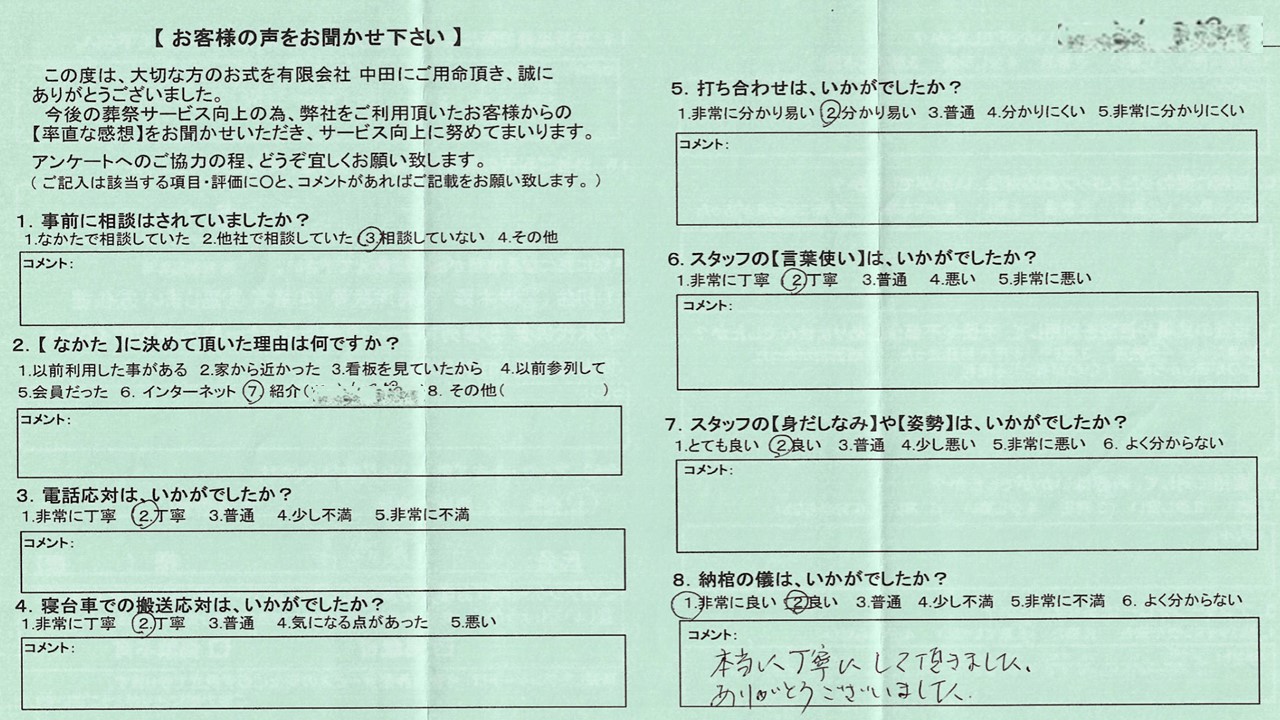 【 お客様の声をお聞かせ下さい 】
この度は、大切な方のお式を有限会社 中田にご用命頂き、誠に
ありがとうございました。
今後の葬祭サービス向上の為、弊社をご利用頂いたお客様からの
【率直な感想】をお聞かせいただき、サービス向上に努めてまいります。
アンケートへのご協力の程、どうぞ宜しくお願い致します。
( ご記入は該当する項目・評価に〇と、コメントがあればご記載をお願い致します。 )
1. 事前に相談はされていましたか?
1.なかたで相談していた 2.他社で相談していた 3.相談していない 4.その他
コメント:
2.【 なかた 】に決めて頂いた理由は何ですか?
1.以前利用した事がある 2.家から近かった 3.看板を見ていたから 4.以前参列して
5.会員だった 6. インターネット 7 紹介( 8. その他( )
コメント:
3. 電話応対は、いかがでしたか?
1.非常に丁寧 2.丁寧 3.普通 4.少し不満 5.非常に不満
コメント:
4. 寝台車での搬送応対は、いかがでしたか?
1.非常に丁寧 2.丁寧 3.普通 4.気になる点があった 5.悪い
コメント:
5. 打ち合わせは、いかがでしたか?
1.非常に分かり易い 2.分かり易い 3.普通 4.分かりにくい 5.非常に分かりにくい
コメント:
6. スタッフの【言葉使い】は、いかがでしたか?
1.非常に丁寧 2.丁寧 3.普通 4.悪い 5.非常に悪い
コメント:
7. スタッフの【身だしなみ】や【姿勢】は、いかがでしたか?
1.とても良い 2.良い 3.普通 4.少し悪い 5.非常に悪い 6. よく分からない
コメント:
8. 納棺の儀は、いかがでしたか?
1.非常に良い 2.良い 3.普通 4.少し不満 5.非常に不満 6. よく分からない
コメント:
本当に丁寧にして頂きました。
ありがとうございました。